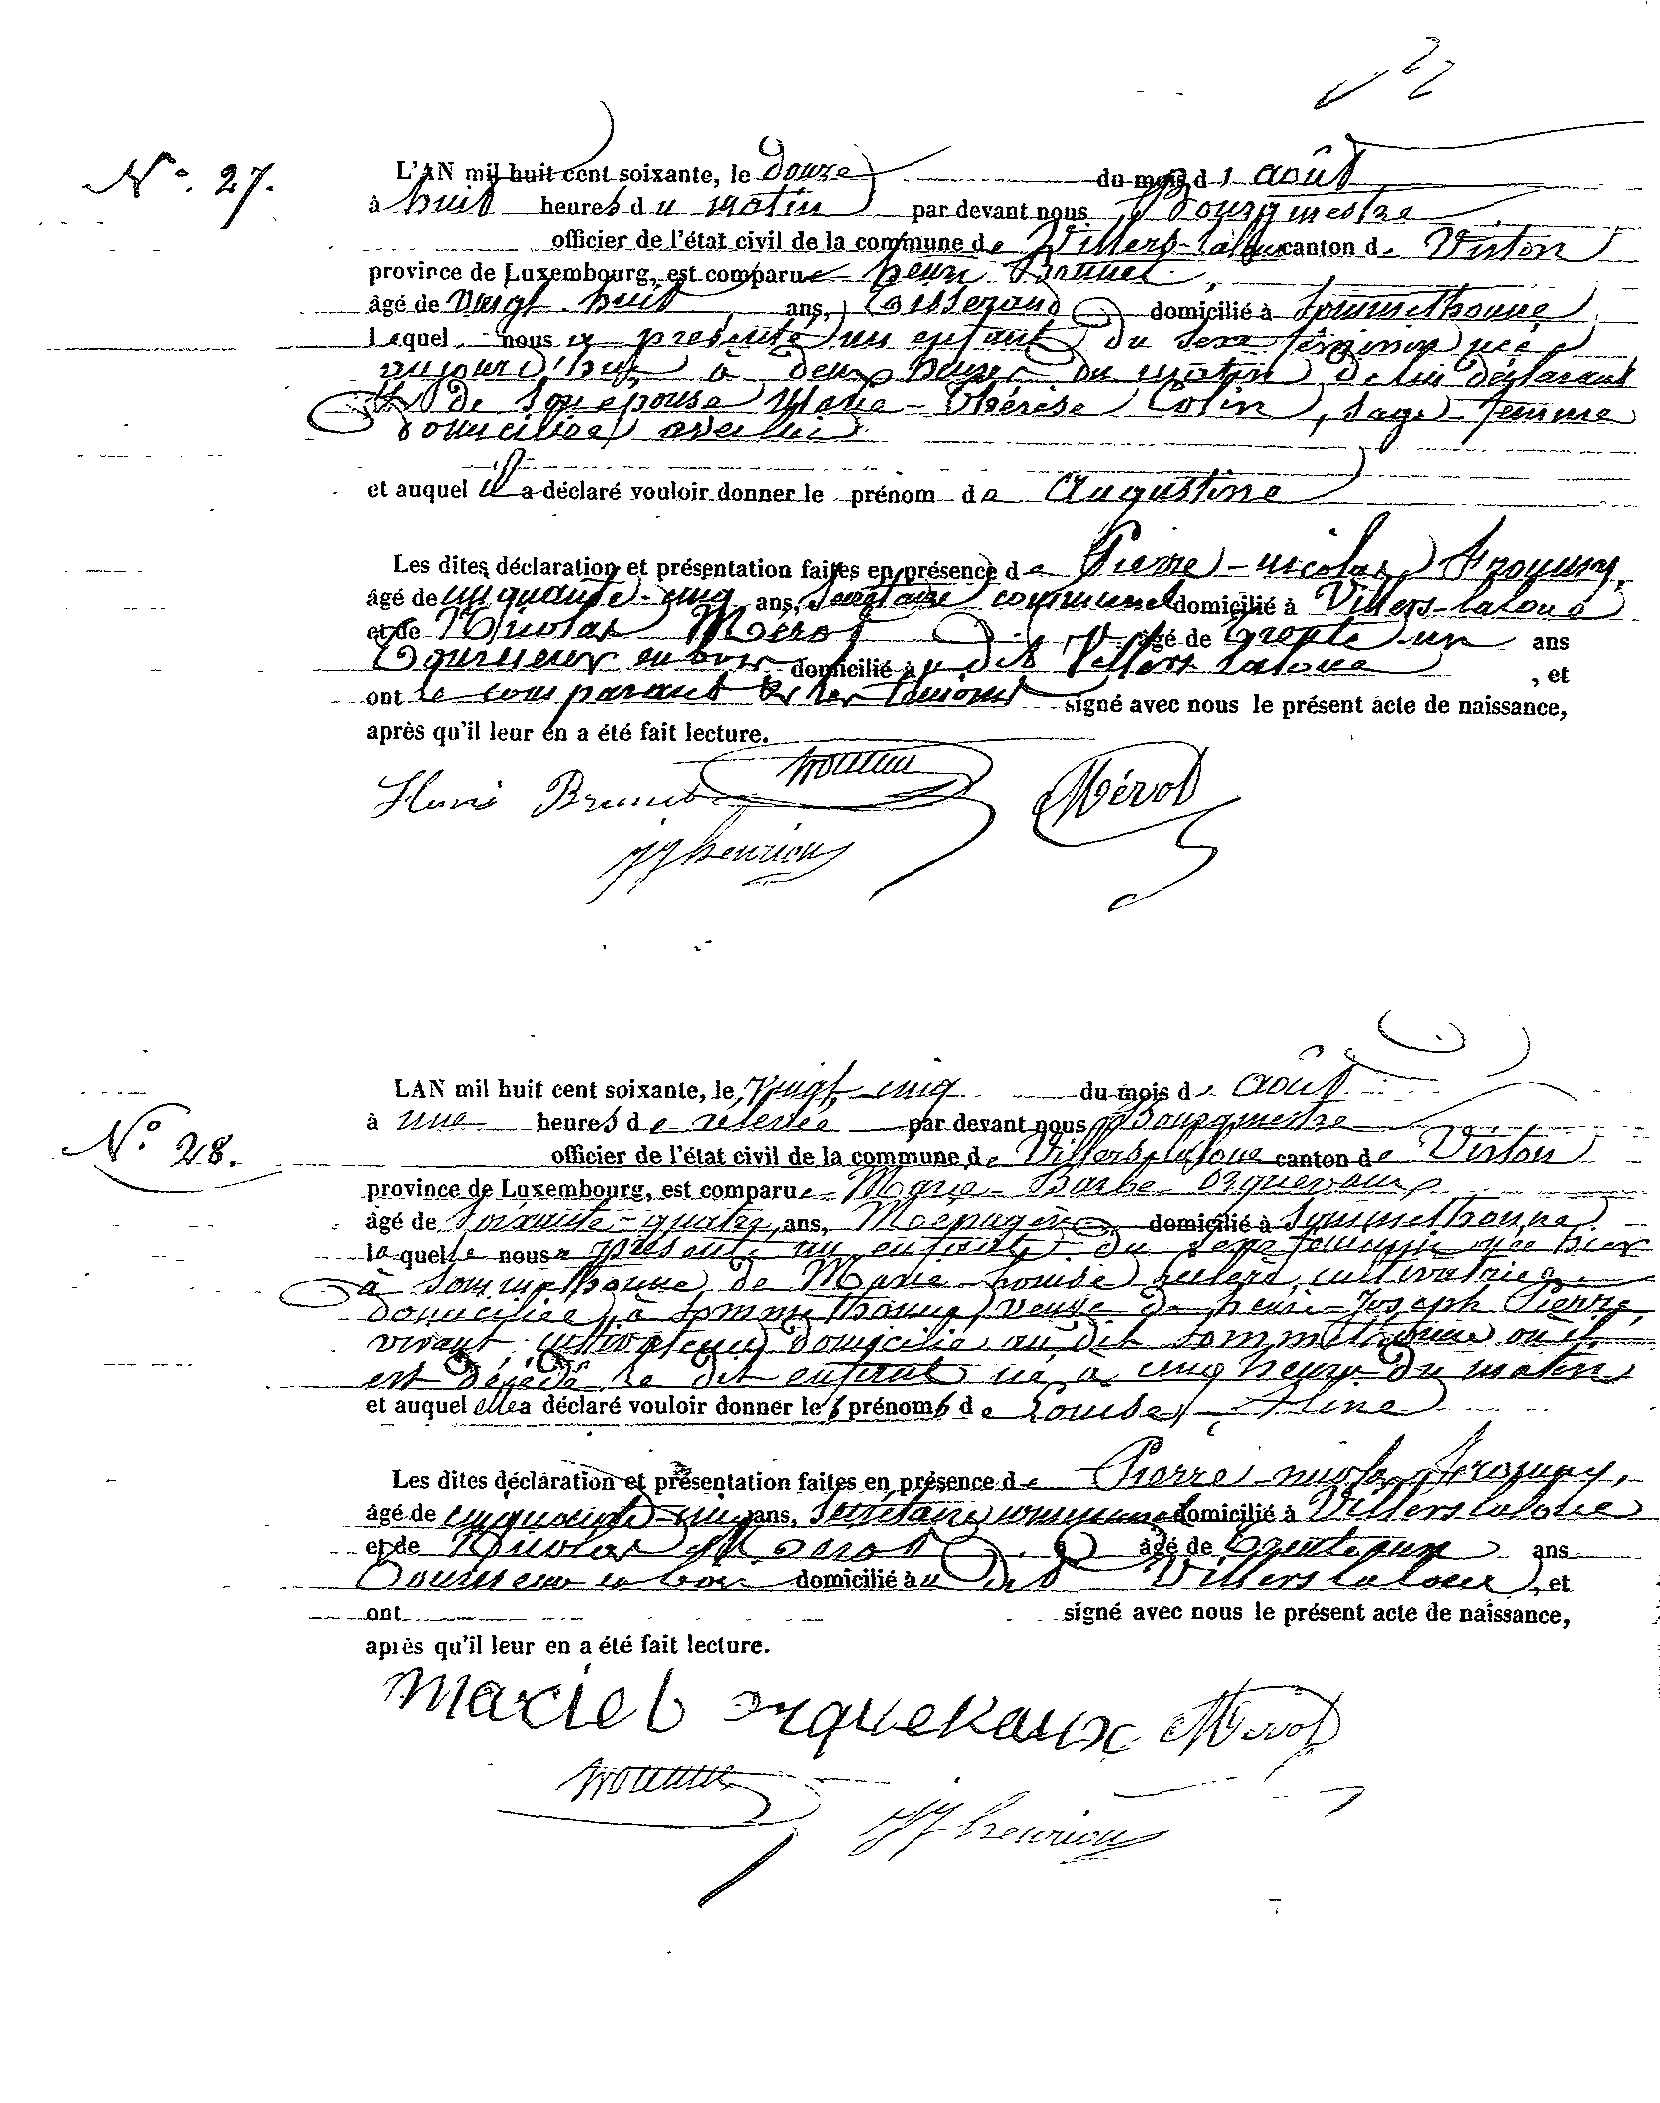 N°. 27.
L'AN mil huit cent soixante, le douze du mois d' août
à huit heures du matin par devant nous Bourgmestre
officier de l'état civil de la commune de Villers-laloue canton de Virton
province de Luxembourg, est comparu henri Brunet,
âgé de vingt huit ans, tisserand domicilié à Sommethonne
lequel nous a présenté un enfant du sexe féminin née
aujourd'hui à deux heures du matin de lui déclarant
et de son épouse Marie-Thérèse Colin, sage femme
domiciliée avec lui
et auquel il a déclaré vouloir donner le prénom de Augustine
Les dites déclaration et présentation faites en présence de Pierre-nicolas
âgé de cinquante-cinq ans, Secrétaire communal domicilié à Villers-laloue
et de Nicolas Mérot âgé de Trente un ans
Tourneur en bois domicilié au dit Villers laloue, et
ont le comparant et les témoins signé avec nous le présent acte de naissance,
après qu'il leur en a été fait lecture.
Henri Brunet Mérot
JJ henrion
N° 28.
L'AN mil huit cent soixante, le vingt cinq du mois d' août
à une heures de relevée par devant nous Bourgmestre
officier de l'état civil de la commune de Villers-laloue canton de Virton
province de Luxembourg, est comparue Marie-Barbe Orquevaux
âgé de soixante-quatre ans, Ménagère domicilié à Sommethonne
laquelle nous a présenté un enfant du sexe féminin née hier
à Sommethonne de Marie-Louise cultivatrice
domiciliée à Sommethonne, veuve de henri-Joseph Pierre,
vivant cultivateur domicilié au dit Sommethonne où il
est décédé le dit enfant né à cinq heures du matin
et auquel elle a déclaré vouloir donner les prénoms de Louise-Aline
Les dites déclaration et présentation faites en présence de Pierre-nicolas
âgé de cinquante-cinq ans, Secrétaire communal domicilié à Villers laloue
et de Nicolas Mérot âgé de Trente un ans
Tourneur en bois domicilié au dit Villers laloue, et
ont signé avec nous le présent acte de naissance,
après qu'il leur en a été fait lecture.
marie b orquevaux Mérot
JJ henrion